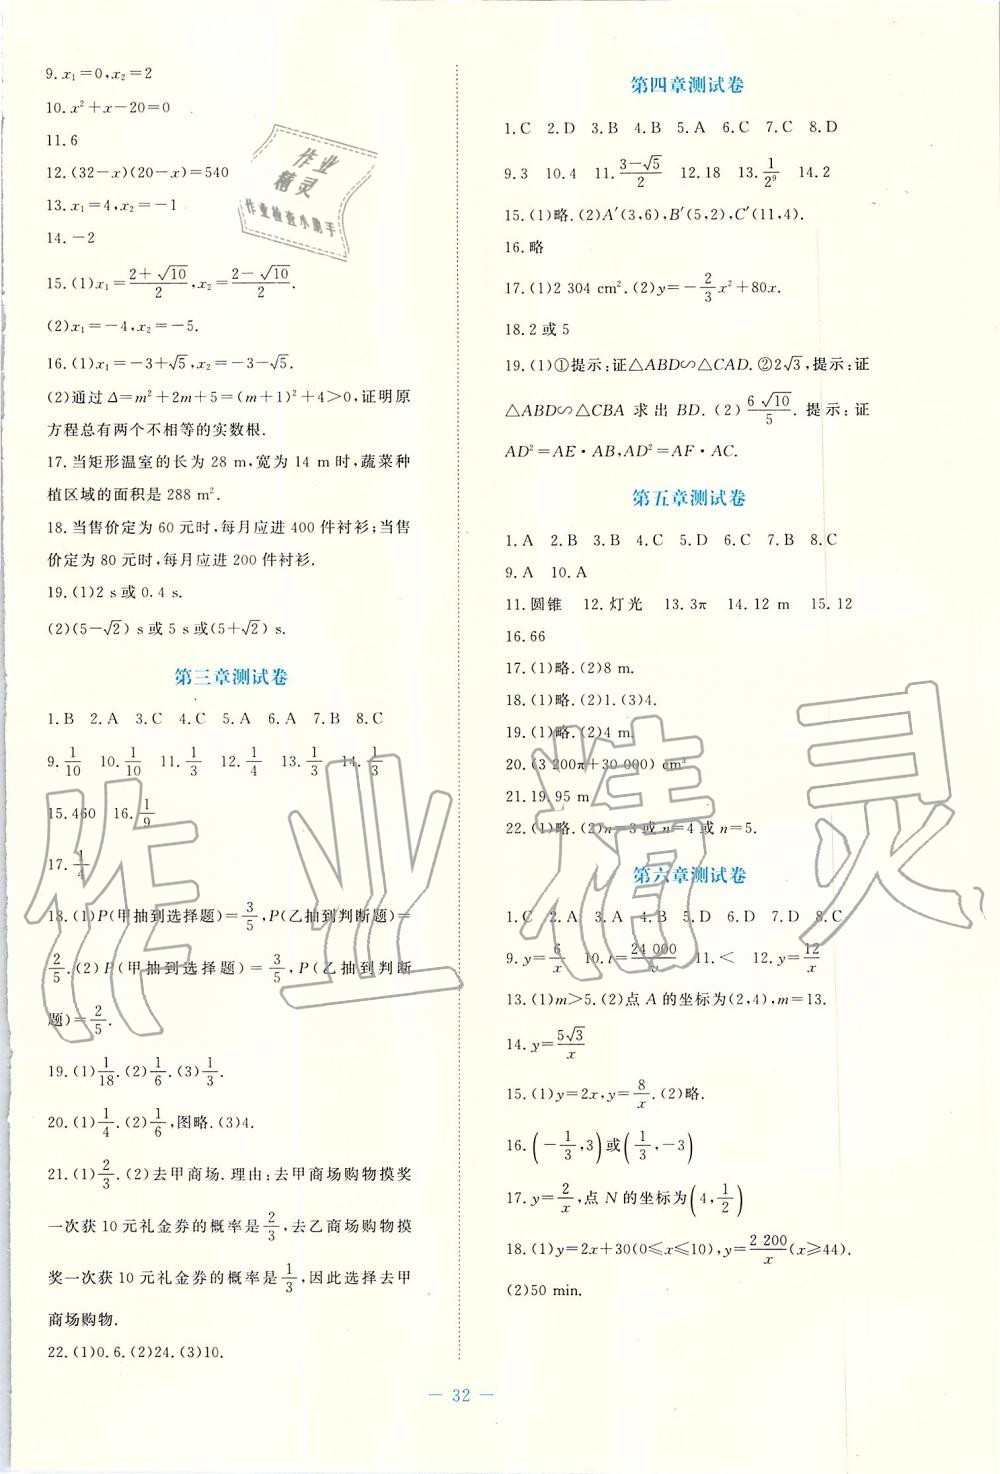 9.x₁=0,x₂=2
10.x²+x-20=0
11.6
12.(32-x)(20-x)=540
13.x₁=4,x₂=-1
14.-2
15.(1)x₁=(2+√10)/2,x₂=(2-√10)/2.
(2)x₁=-4,x₂=-5.
16.(1)x₁=-3+√5,x₂=-3-√5.
(2)通过Δ=m²+2m+5=(m+1)²+4>0,证明原
方程总有两个不相等的实数根.
17.当矩形温室的长为28 m,宽为14 m时,蔬菜种
植区域的面积是288 m².
18.当售价定为60元时,每月应进400件衬衫;当售
价定为80元时,每月应进200件衬衫.
19.(1)2 s或0.4 s.
(2)(5-√2) s或5 s或(5+√2) s.
第三章测试卷
1.B 2.A 3.C 4.C 5.A 6.A 7.B 8.C
9.1/10 10.1/10 11.1/3 12.1/4 13.1/3 14.1/3
15.460 16.1/9
17.1/4
18.(1)P(甲抽到选择题)=3/5,P(乙抽到判断题)=
2/5.(2)P(甲抽到选择题)=3/5,P(乙抽到判断
题)=2/5.
19.(1)1/18.(2)1/6.(3)1/3.
20.(1)1/4.(2)1/6,图略.(3)4.
21.(1)2/3.(2)去甲商场.理由:去甲商场购物摸奖
一次获10元礼金券的概率是2/3,去乙商场购物摸
奖一次获10元礼金券的概率是1/3,因此选择去甲
商场购物.
22.(1)0.6.(2)24.(3)10.
第四章测试卷
1.C 2.D 3.B 4.B 5.A 6.C 7.C 8.D
9.3 10.4 11.(3-√5)/2 12.18 13.1/2⁹ 14.2
15.(1)略.(2)A′(3,6),B′(5,2),C′(11,4).
16.略
17.(1)2 304 cm².(2)y=-2/3x²+80x.
18.2或5
19.(1)①提示:证△ABD∽△CAD.②2√3,提示:证
△ABD∽△CBA求出BD.(2)6√10/5.提示:证
AD²=AE·AB,AD²=AF·AC.
第五章测试卷
1.A 2.B 3.B 4.C 5.D 6.C 7.B 8.C
9.A 10.A
11.圆锥 12.灯光 13.3π 14.12 m 15.12
16.66
17.(1)略.(2)8 m.
18.(1)略.(2)1.(3)4.
19.(1)略.(2)4 m.
20.(3 200π+30 000) cm³
21.19.95 m
22.(1)略.(2)n=3或n=4或n=5.
第六章测试卷
1.C 2.A 3.A 4.B 5.D 6.D 7.D 8.C
9.y=6/x 10.t=24 000/v 11.< 12.y=12/x
13.(1)m>5.(2)点A的坐标为(2,4),m=13.
14.y=5√3/x
15.(1)y=2x,y=8/x.(2)略.
16.(-1/3,3)或(1/3,-3)
17.y=2/x,点N的坐标为(4,1/2)
18.(1)y=2x+30(0≤x≤10),y=2 200/x(x≥44).
(2)50 min.
— 32 —
作业
精灵
作业检查小助手
作业精灵